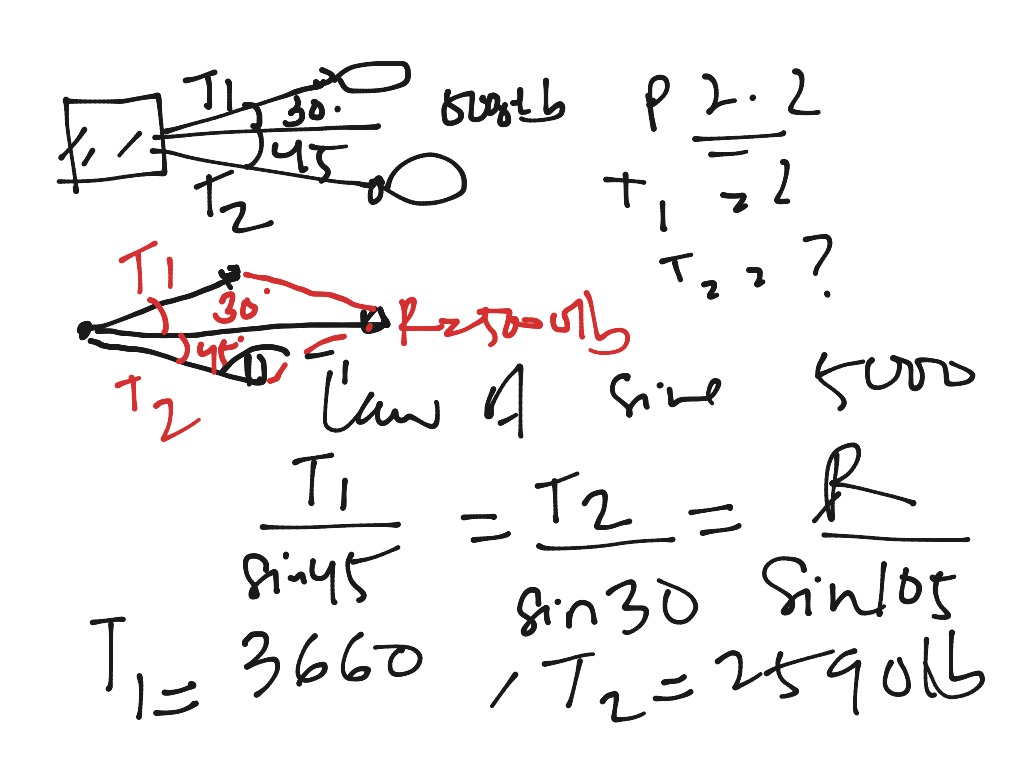 T1 30° 5000 lb P 2.2
45
T2 T1 = ?
T1 T2 = ?
30° R = 5000 lb
45°
T2 Law of sine 5000
T1 / sin45 = T2 / sin30 = R / Sin105
T1 = 3660, T2 = 2590 lb